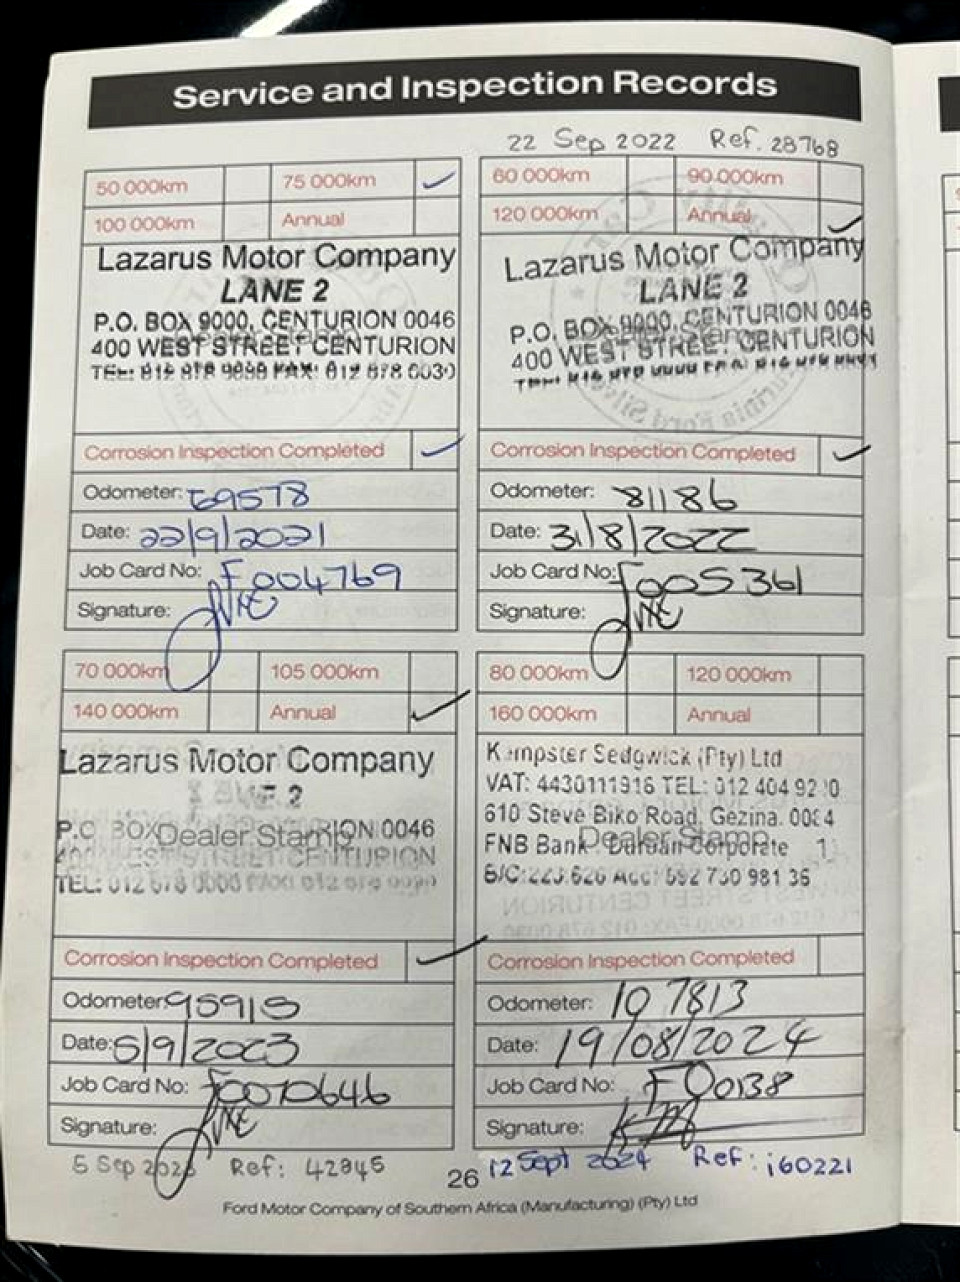 Service and Inspection Records
22 Sep 2022 Ref. 28768
50 000km 75 000km ✓
100 000km Annual
Lazarus Motor Company
LANE 2
P.O. BOX 9000, CENTURION 0046
400 WEST STREET, CENTURION
Corrosion Inspection Completed ✓
Odometer: 69578
Date: 22/9/2021
Job Card No: F004769
Signature:
60 000km 90 000km
120 000km Annual ✓
Lazarus Motor Company
LANE 2
P.O. BOX 9000, CENTURION 0046
400 WEST STREET, CENTURION
Corrosion Inspection Completed ✓
Odometer: 81186
Date: 31/8/2022
Job Card No: F005361
Signature:
70 000km 105 000km
140 000km Annual ✓
Lazarus Motor Company
2
P.O BOX RION 0046
Dealer Stamp
400 WEST STREET CENTURION
Corrosion Inspection Completed ✓
Odometer: 95915
Date: 5/9/2023
Job Card No:
Signature:
5 Sep Ref: 42845
80 000km 120 000km
160 000km Annual
Kempster Sedgwick (Pty) Ltd
VAT: 4430111916 TEL: 012 404
610 Steve Biko Road, Gezina.
Dealer Stamp
FNB Bank Durban Corporate
Corrosion Inspection Completed
Odometer: 107813
Date: 19/08/2024
Job Card No: F00138
Signature:
12 Sept 2024 Ref: i60221
26
Ford Motor Company of Southern Africa (Manufacturing) (Pty) Ltd